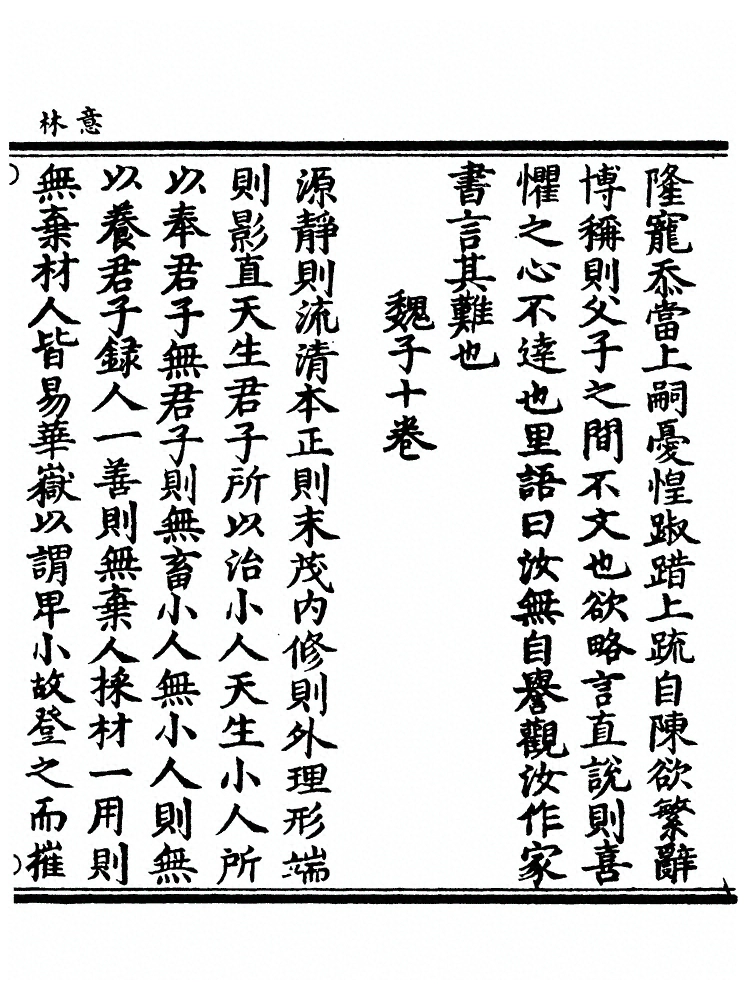 意林
隆寵忝當上嗣憂惶踧踖上疏自陳欲繁辭
博稱則父子之間不文也欲略言直說則喜
懼之心不達也里語曰汝無自譽觀汝作家
書言其難也
魏子十卷
源靜則流清本正則末茂內修則外理形端
則影直天生君子所以治小人天生小人所
以奉君子無君子則無畜小人無小人則無
以養君子錄人一善則無棄人採材一用則
無棄材人皆易華嶽以謂卑小故登之而摧